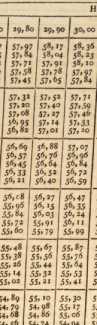 H
29,80 29,90 30,00
57,97 58,17 58,36
57,84 58,04 58,23
57,71 57,91 58,10
57,58 57,78 57,97
57,45 57,65 57,84
57,32 57,52 57,71
57,20 57,40 57,59
57,08 57,27 57,46
56,95 57,14 57,33
56,82 57,01 57,20
56,69 56,88 57,07
56,57 56,76 56,95
56,45 56,64 56,83
56,33 56,52 56,71
56,21 56,40 56,59
56,08 56,27 56,47
55,96 56,15 56,35
55,84 56,03 56,23
55,72 55,91 56,11
55,60 55,79 55,99
55,48 55,67 55,87
55,38 55,56 55,76
55,26 55,44 55,64
55,14 55,32 55,53
55,02 55,21 55,41
54,89 55,10 55,30